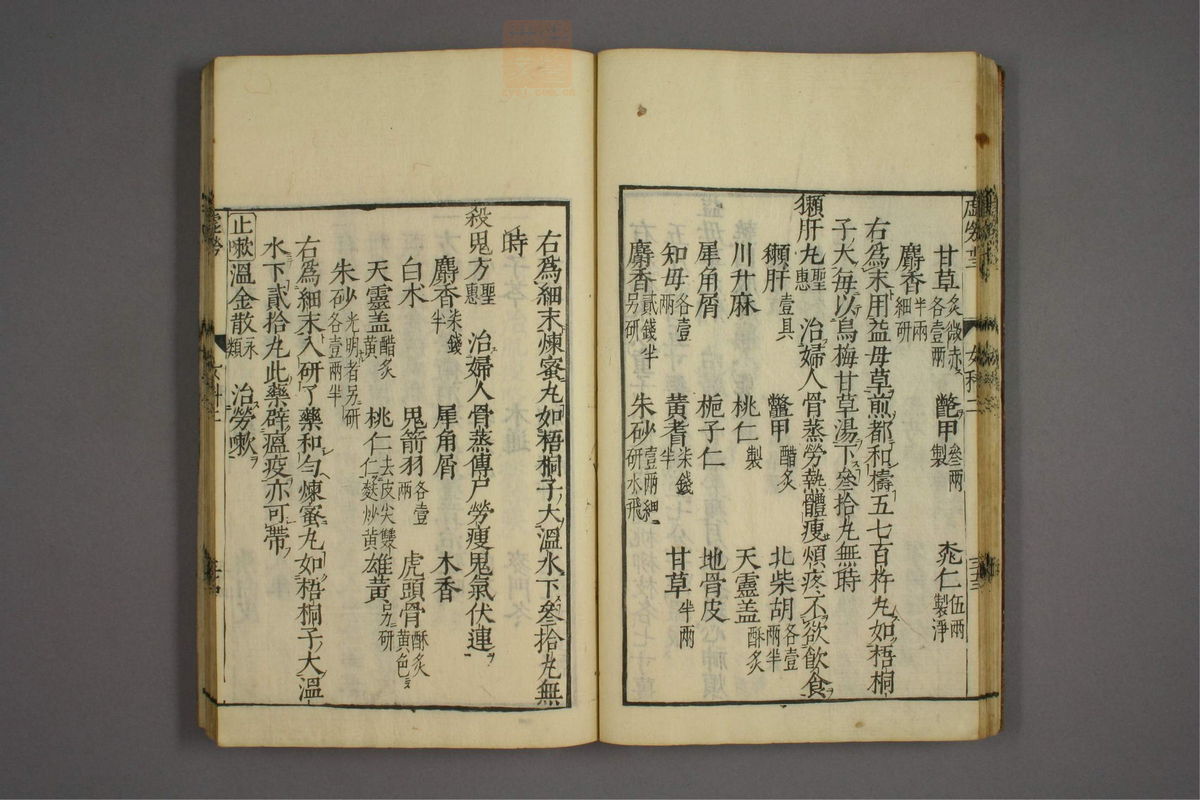 甘草炙微赤各壹兩　鼈甲叄兩製　桃仁伍兩製淨
麝香半兩細研
右爲末用益母草煎都和擣五七百杵丸如梧桐
子大毎以烏梅甘草湯下叄拾丸無時
獺肝丸聖惠　治婦人骨蒸勞熱體瘦煩疼不欲飲食
獺肝壹具　鼈甲醋炙　北柴胡各壹兩半
川升麻　桃仁製　天靈盖酥炙
犀角屑　梔子仁　地骨皮
知母各壹兩　黃耆柒錢半　甘草半兩
麝香貳錢半另研　朱砂壹兩細研水飛
右爲細末煉蜜丸如梧桐子大溫水下叄拾丸無
時
殺鬼方聖惠　治婦人骨蒸傳尸勞瘦鬼氣伏連
麝香柒錢半　犀角屑　木香
白朮　鬼箭羽各壹兩　虎頭骨酥炙黃色
天靈盖醋炙黃　桃仁去皮尖雙仁麩炒黃　雄黃另研
朱砂光明者另研各壹兩半
右爲細末入研了藥和勻煉蜜丸如梧桐子大溫
水下貳拾丸此藥辟瘟疫亦可帶
止嗽　溫金散永類　治勞嗽